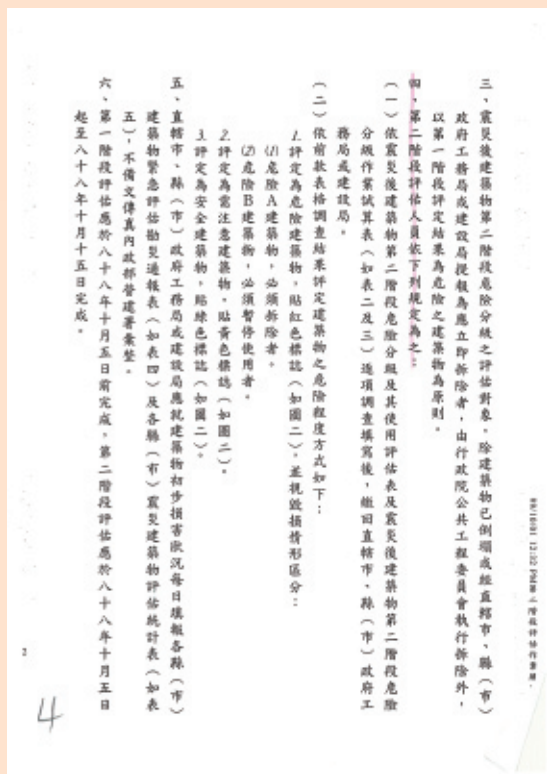 三、震災後建築物第二階段危險分級之評估對象，除建築物已倒塌或經直轄市、縣（市）
政府工務局或建設局提報為應立即拆除者，由行政院公共工程委員會執行拆除外，
以第一階段評定結果為危險之建築物為原則。
四、第二階段評估人員依下列規定為之：
（一）依震災後建築物第二階段危險分級及其使用評估表及震災後建築物第二階段危險
分級作業試算表（如表二及三）逐項調查填寫後，繳回直轄市、縣（市）政府工
務局或建設局。
（二）依前款表格調查結果評定建築物之危險程度方式如下：
1.評定為危險建築物，貼紅色標誌（如圖二）。並視毀損情形區分：
(1)危險A建築物，必須拆除者。
(2)危險B建築物，必須暫停使用者。
2.評定為需注意建築物，貼黃色標誌（如圖二）。
3.評定為安全建築物，貼綠色標誌（如圖二）。
五、直轄市、縣（市）政府工務局或建設局應就建築物初步損害狀況每日填報各縣（市）
建築物緊急評估勘災通報表（如表四）及各縣（市）震災建築物評估統計表（如表
五），不備文傳真內政部營建署彙整。
六、第一階段評估應於八十八年十月五日前完成，第二階段評估應於八十八年十月五日
起至八十八年十月十五日完成。
2
4